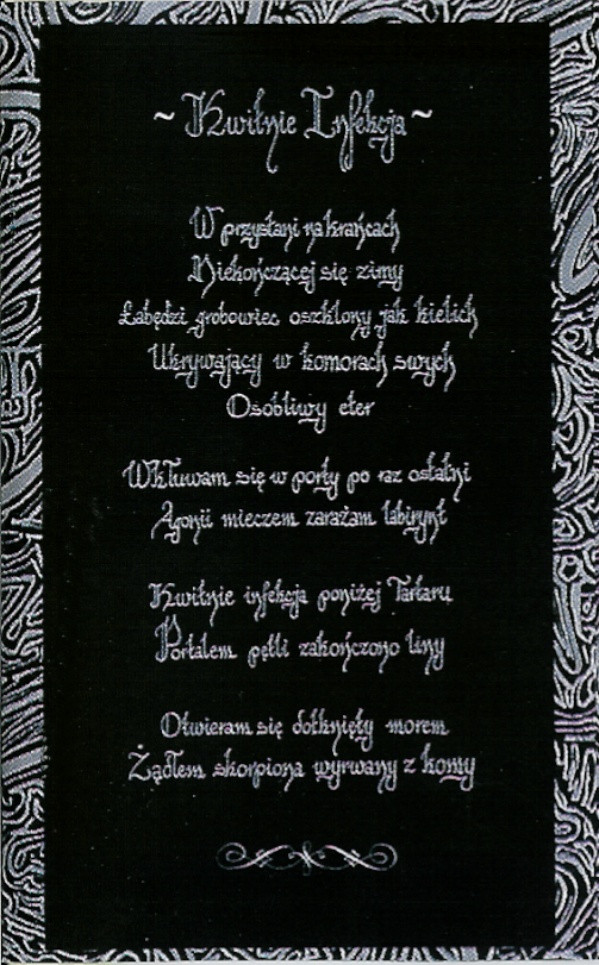 ~ Kwitnie Infekcja ~
W przystani na krańcach
Niekończącej się zimy
Łabędzi grobowiec oszklony jak kielich
Ukrywający w komorach swych
Osobliwy eter
Wkłuwam się w porty po raz ostatni
Agonii mieczem zarażam labirynt
Kwitnie infekcja poniżej Tartaru
Portalem pętli zakończono liny
Otwieram się dotknięty morem
Żądłem skorpiona wyrwany z komy